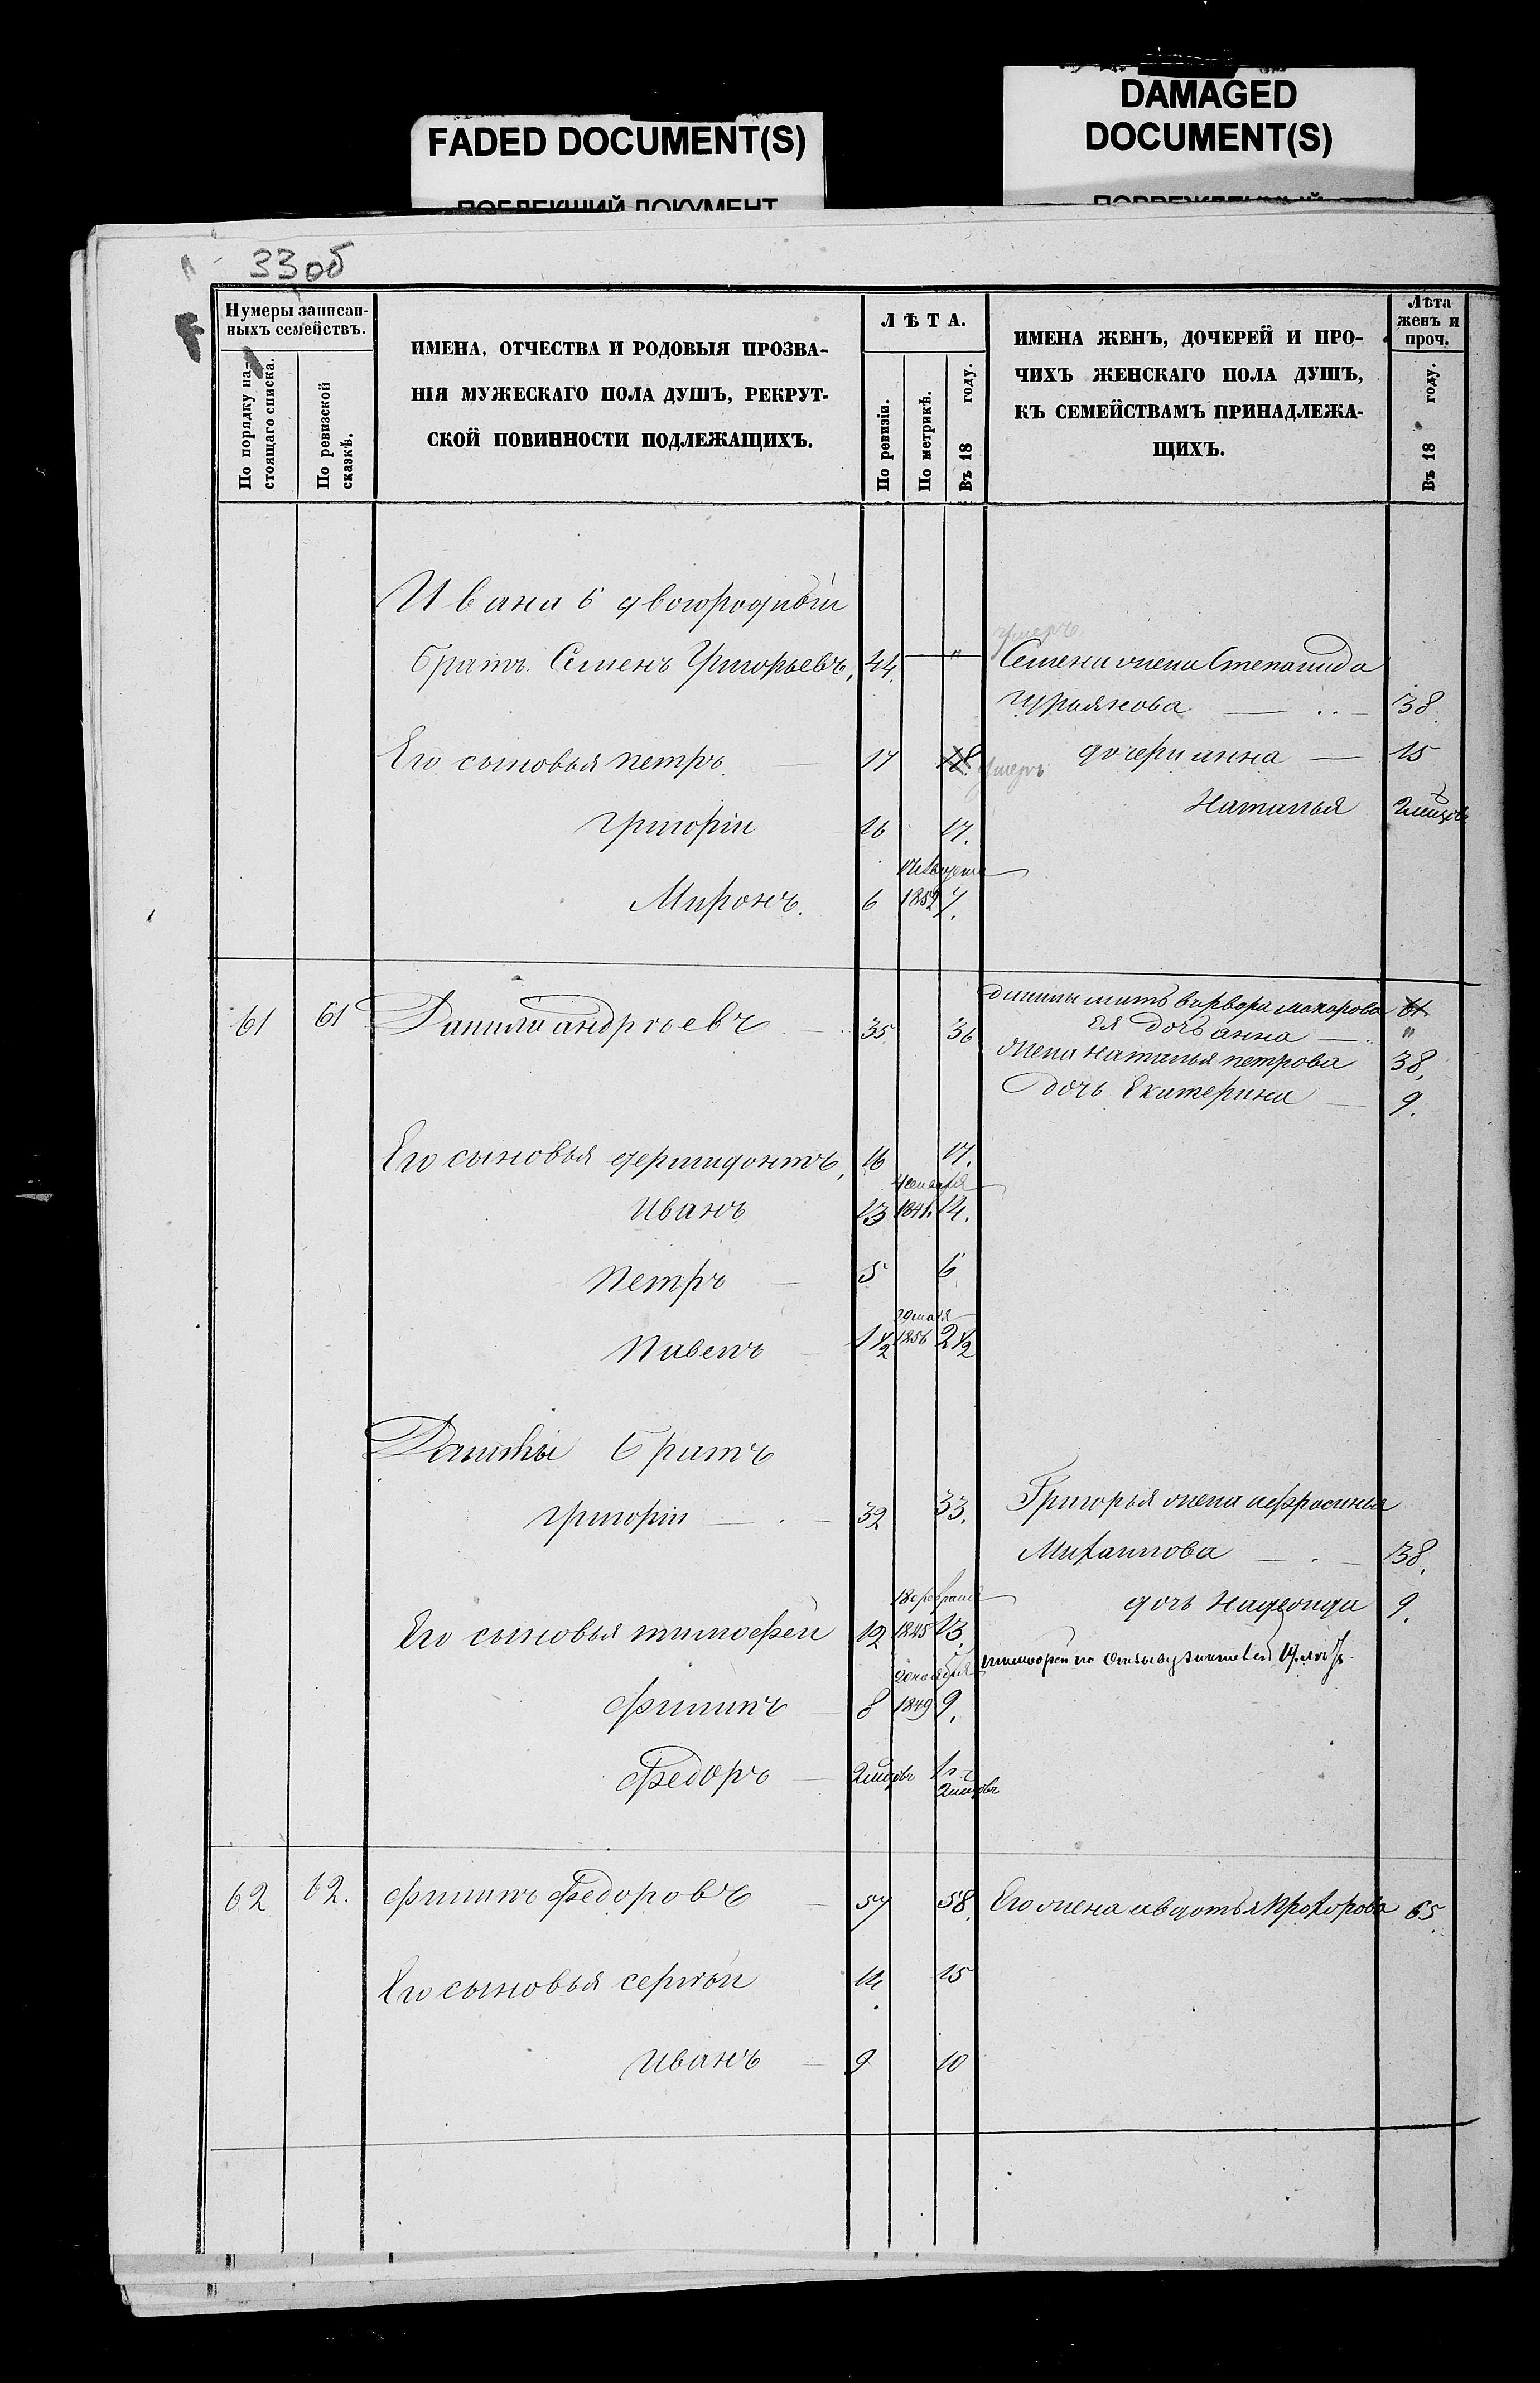 FADED DOCUMENT(S)
DAMAGED
DOCUMENT(S)
33 об
Нумеры записан-
ныхъ семействъ.
По порядку на-
стоящаго списка.
По ревизской
сказкѣ.
ИМЕНА, ОТЧЕСТВА И РОДОВЫЯ ПРОЗВА-
НІЯ МУЖЕСКАГО ПОЛА ДУШЪ, РЕКРУТ-
СКОЙ ПОВИННОСТИ ПОДЛЕЖАЩИХЪ.
ЛѢТА.
По ревизіи.
По метрикѣ.
Въ 18 году.
ИМЕНА ЖЕНЪ, ДОЧЕРЕЙ И ПРО-
ЧИХЪ ЖЕНСКАГО ПОЛА ДУШЪ,
КЪ СЕМЕЙСТВАМЪ ПРИНАДЛЕЖА-
ЩИХЪ.
Лѣта
женъ и
проч.
Въ 18 году.
Ивана 6 двоюродный
умеръ
братъ Семенъ Григорьевъ, 44. — " Семена жена Степанида
Гурьянова — 38
Его сыновья петръ 17 18 умеръ дочери анна — 15
григоріи 16 17. Наталья 2 мѣсцовъ
Миронъ. 6 1852 7.
61 61 Данила андреевъ 35 36 данилы мать варвара макарова 61
ея дочь анна — "
жена наталья петрова 38,
дочь Екатерина — 9.
Его сыновья дермидонтъ, 16 17.
Иванъ 13 1841. 14.
Петръ — 5 6
29 мая
Павелъ 1 1/2 1856 2 1/2
Данилы братъ
григоріи — 32 33. Григорья жена афросинья
Михаилова — 38,
18 февраля дочь надежда 9.
Его сыновья тимофеи 12 1845 13.
декабря тимофеи по отзыву 17. лѣтъ
филипъ 8 1849 9.
Федоръ — 2 мѣсцовъ 1 г
2 мѣсцовъ
62 62. филипъ Федоровъ 57 58. Его жена авдотья прохорова 65.
Его сыновья сергѣи 14 15
иванъ 9 10